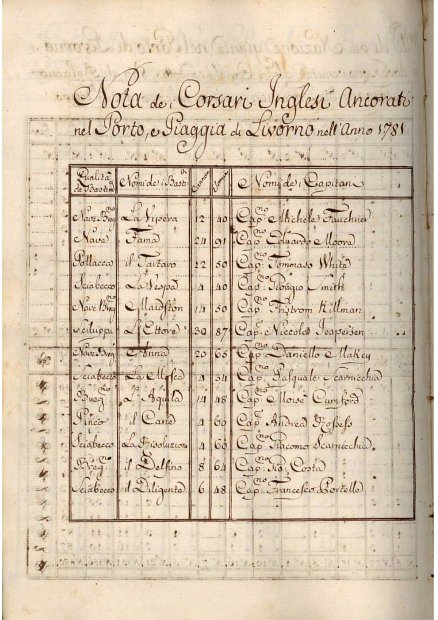 Nota de i Corsari Inglesi Ancorati
nel Porto, e Piaggia di Livorno nell'Anno 1781
Qualità de Bastim.ti Nomi de i Bast.i Nomi de i Capitani
La Vipera 12 40 Cap.no Michele Fauchner
Nave Fama 24 91 Cap.no Eduardo Moore
Pollacca il Tartaro 22 50 Cap.no Tommaso White
Sciabecco La Vespa 4 40 Cap.no Giorgio Smith
Maidston 14 50 Cap.no Tristrom Killman
Sciluppa L'Ettore 30 87 Cap.no Niccolò Jespersen
Anna 20 65 Cap.no Daniello Makey
Sciabecco La Mosca 4 34 Cap.no Pasquale Scarnicchia
Brig.no L'Aquila 14 48 Cap.no Moise Cumford
Pinco il Cane 4 60 Cap.no Andrea
Sciabecco La Risoluzione 4 60 Cap.no Giacomo Scarnicchia
Brig.no il Delfino 8 64 Cap.no Gio. Costa
Sciabecco il Diligente 6 48 Cap.no Francesco Portelli